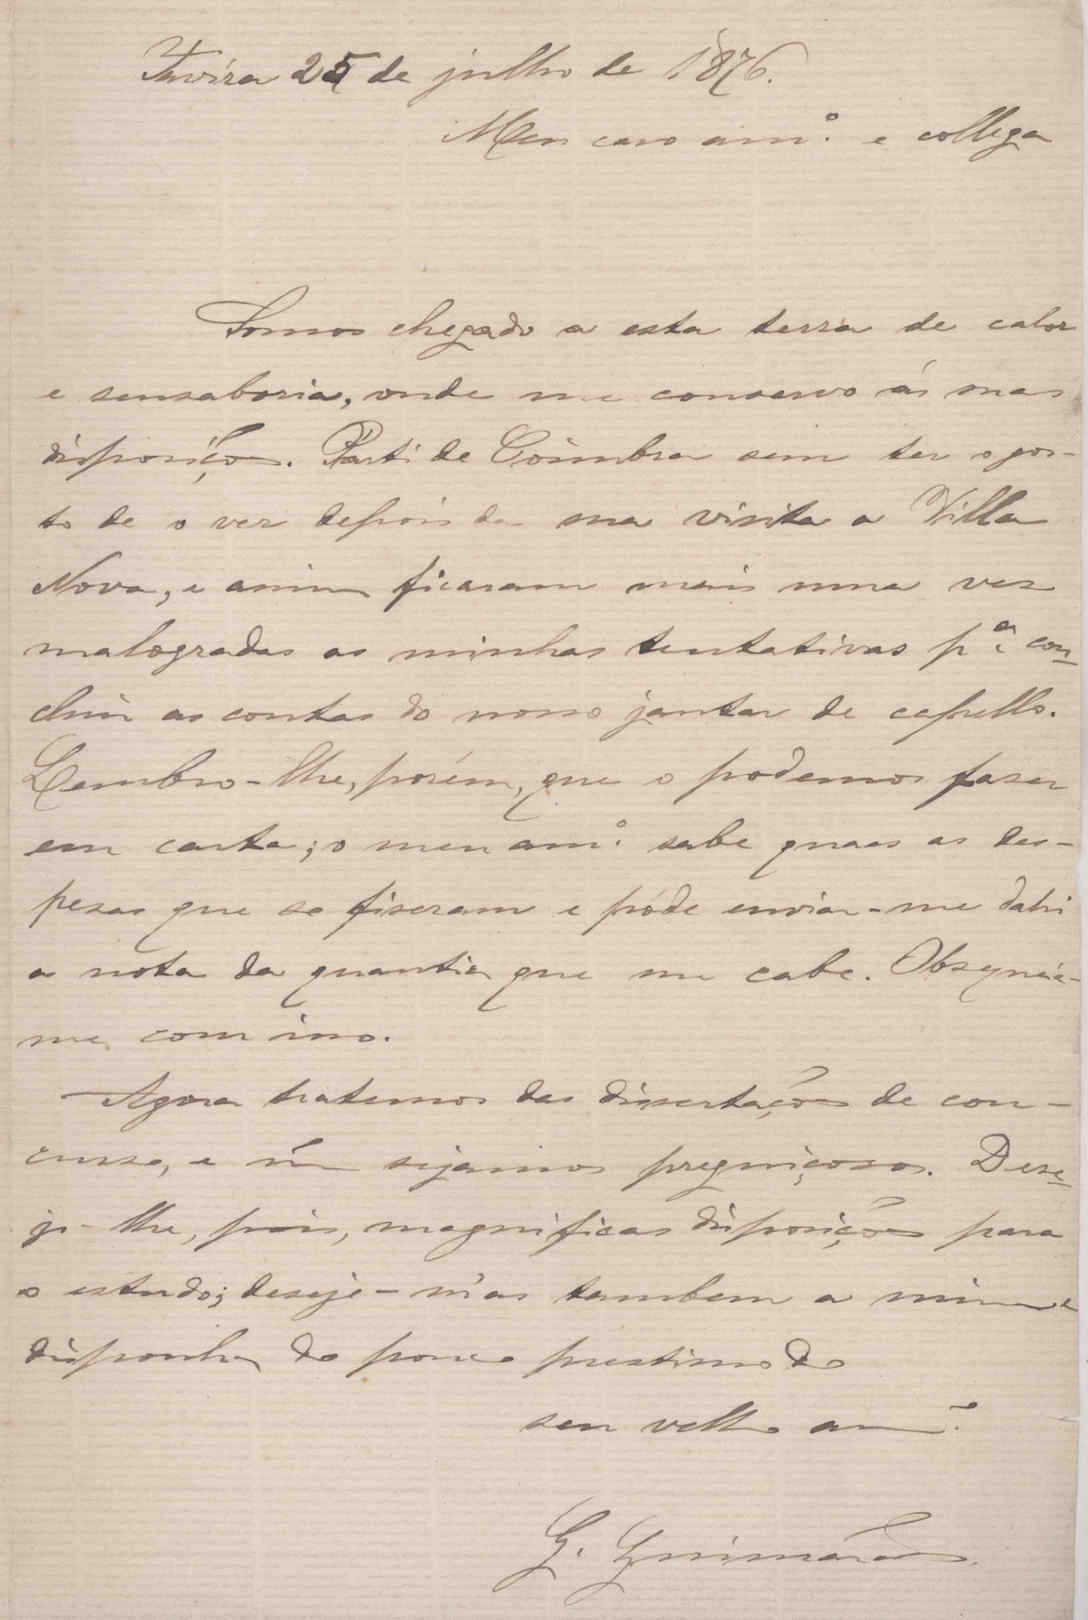 Tavira 25 de julho de 1876.
Meu caro am.º e collega
Somos chegado a esta terra de calor
e sensaboria, onde me conservo ás suas
disposições. Parti de Coimbra sem ter o gos-
to de o ver depois da sua visita a Villa
Nova, e assim ficaram mais uma vez
malogradas as minhas tentativas p.ª con-
cluir as contas do nosso jantar de capello.
Lembro-lhe, porém, que o podemos fazer
em carta; o meu am.º sabe quaes as des-
pezas que se fizeram e póde enviar-me dahi
a nota da quantia que me cabe. Obsequeie-
me com isso.
Agora tratemos das dissertações de con-
curso, e não sejamos preguiçosos. Dese-
jo-lhe, pois, magnificas disposições para
o estudo; deseje-m'as tambem a mim e
disponha do pouco prestimo do
seu velho am.º
G. Guimarães